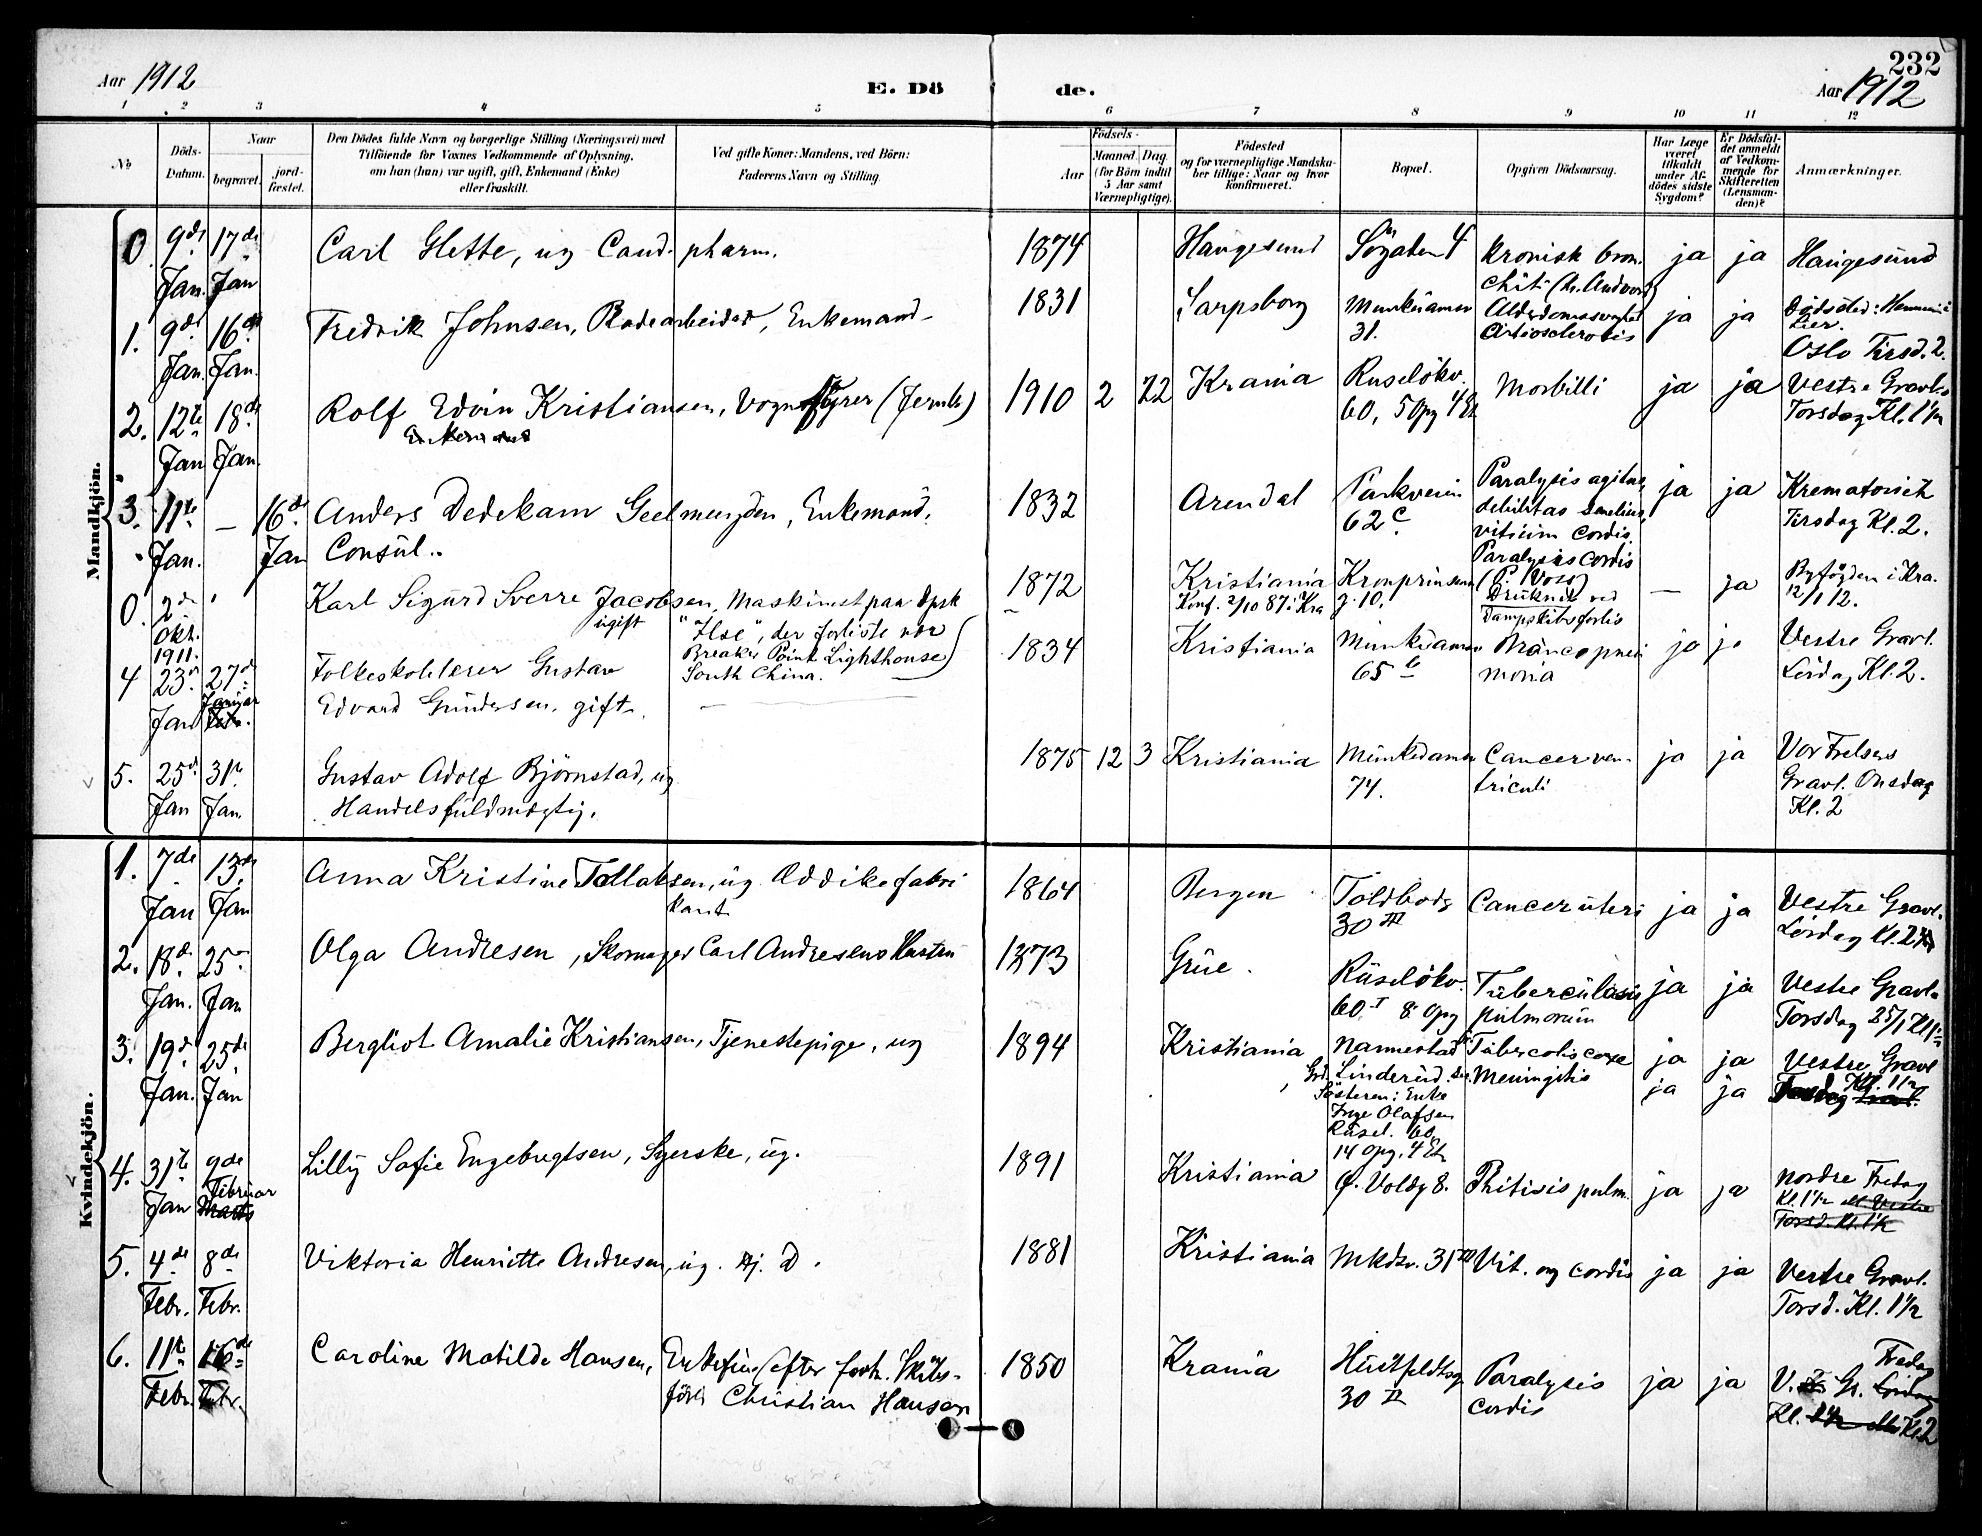 232
Aar 1912
E. Dö de.
Aar 1912
1 2 3 4 5 6 7 8 9 10 11 12
No
Döds-Datum.
Naar
begravet.
jord-fæstet.
Den Dödes fulde Navn og borgerlige Stilling (Næringsvei) med
Tilföiende for Voxnes Vedkommende af Oplysning,
om han (hun) var ugift, gift, Enkemand (Enke)
eller fraskilt.
Ved gifte Koner: Mandens, ved Börn:
Faderens Navn og Stilling.
Födsels-
Aar
Maaned. Dag
(for Börn indtil
5 Aar samt
Værnepligtige).
Födested
og for værnepligtige Mandska-
ber tillige: Naar og hvor
konfirmeret.
Bopæl.
Opgiven Dödsaarsag.
Har Læge
været
tilkaldt
under Af-
dödes sidste
Sygdom?
Er Dödsfal-
det anmeldt
af Vedkom-
mende for
Skifteretten
(Lensman-
den)?
Anmærkninger.
Mandkjön.
0. 9de Jan. 17de Jan
Carl Glette, ug Cand. pharm.
1874 Haugesund Søgaten 4
kronisk bron-
chit
ja ja Haugesund
1. 9de Jan. 16de Jan.
Fredrik Johnsen, Bodearbeider, Enkemand
1831 Sarpsborg Munkdamsv
31.
Alderdomssvaghed
Artiosclerosis
ja ja
Lier.
Oslo Tirsd. 2.
2. 12te Jan 18de Jan.
Rolf Edvin Kristiansen, Vognstyrer (Jernb)
1910 2 22 Krania Ruselökv.
60, 5 Opg 4 Et
Morbilli ja ja Vestre Gravl.
Torsdag Kl. 1½
3. 11te Jan. — 16de Jan
Anders Dedekam Geelmuyden, Enkemand.
Consul.
1832 Arendal Parkveien
62c
Paralysis agitans,
debilitas senilis,
vitium cordis.
Paralysis cordis
(P. Voss)
ja ja Krematoriet
Tirsdag Kl. 2.
0. 2de Okt. 1911.
Karl Sigurd Sverre Jacobsen, Maskinist paa Dpsk
ugift "Ilse", der forliste nær
Breaker Point Lighthouse
South China.
1872 Kristiania
Konf. 2/10 87 i Kra
Kronprinsens
g. 10.
Druknet ved
Dampskibsforlis
— ja Byfogden i Kra.
12/1 12.
4 23de Jan 27de Januar
Folkeskolelærer Gustav
Edvard Gundersen, gift.
1834 Kristiania Munkdamsv
65b
Broncopneu
monia
ja ja Vestre Gravl.
Lördag Kl. 2.
5. 25de Jan 31te Jan.
Gustav Adolf Björnstad, ug.
Handelsfuldmægtig.
1875 12 3 Kristiania Munkedamsv
74.
Cancer ven-
triculi
ja ja Vor Frelsers
Gravl. Onsdag
Kl. 2
Kvindekjön.
1. 7de Jan 13de Jan
Anna Kristine Tollaksen, ug. Eddikefabri
kant
1864 Bergen Toldbodg
30 III
Cancer uteri ja ja Vestre Gravl.
Lördag Kl. 2
2. 18de Jan. 25de Jan
Olga Andresen, Skomager Carl Andresens Hustru
1873 Grue. Ruselökv.
60. I 8 Opg
Tuberculosis
pulmorum
ja ja Vestre Gravl.
Torsdag 25/1 Kl 1½
3. 19de Jan. 25de Jan
Bergliot Amalie Kristiansen, Tjenestepige, ug
1894 Kristiania Nannestad
Grd. Linderud.
Søsteren: Enke
Inge Olafsen
Rusel. 60,
14 Opg. 4 Et.
Tubercolis coxe
Meningitis
ja ja
ja ja
Vestre Gravl
Kl. 1½
4. 31te Jan 9de Februar
Lilly Sofie Engebregtsen, Syerske, ug.
1891 Kristiania Ø. Voldg 8. Phitisis pulm. ja ja Nordre Fredag
Kl. 1½
Torsd. Kl. 1½
5. 4de Febr. 8de Febr.
Viktoria Henriette Andresen, ug. Hj. D.
1881 Kristiania Mkdsv. 31 III Vit. org cordis ja ja Vestre Gravl.
Torsd. Kl. 1½
6. 11te Febr. 16de Febr.
Caroline Matilde Hansen, Enkefrue (efter forh. Skibs-
förer Christian Hansen
1850 Krania Huitfeldtsg
30 II
Paralysis
cordis
ja ja Fredag
V. Gr. Lördag
Kl. 1½ Kl. 2